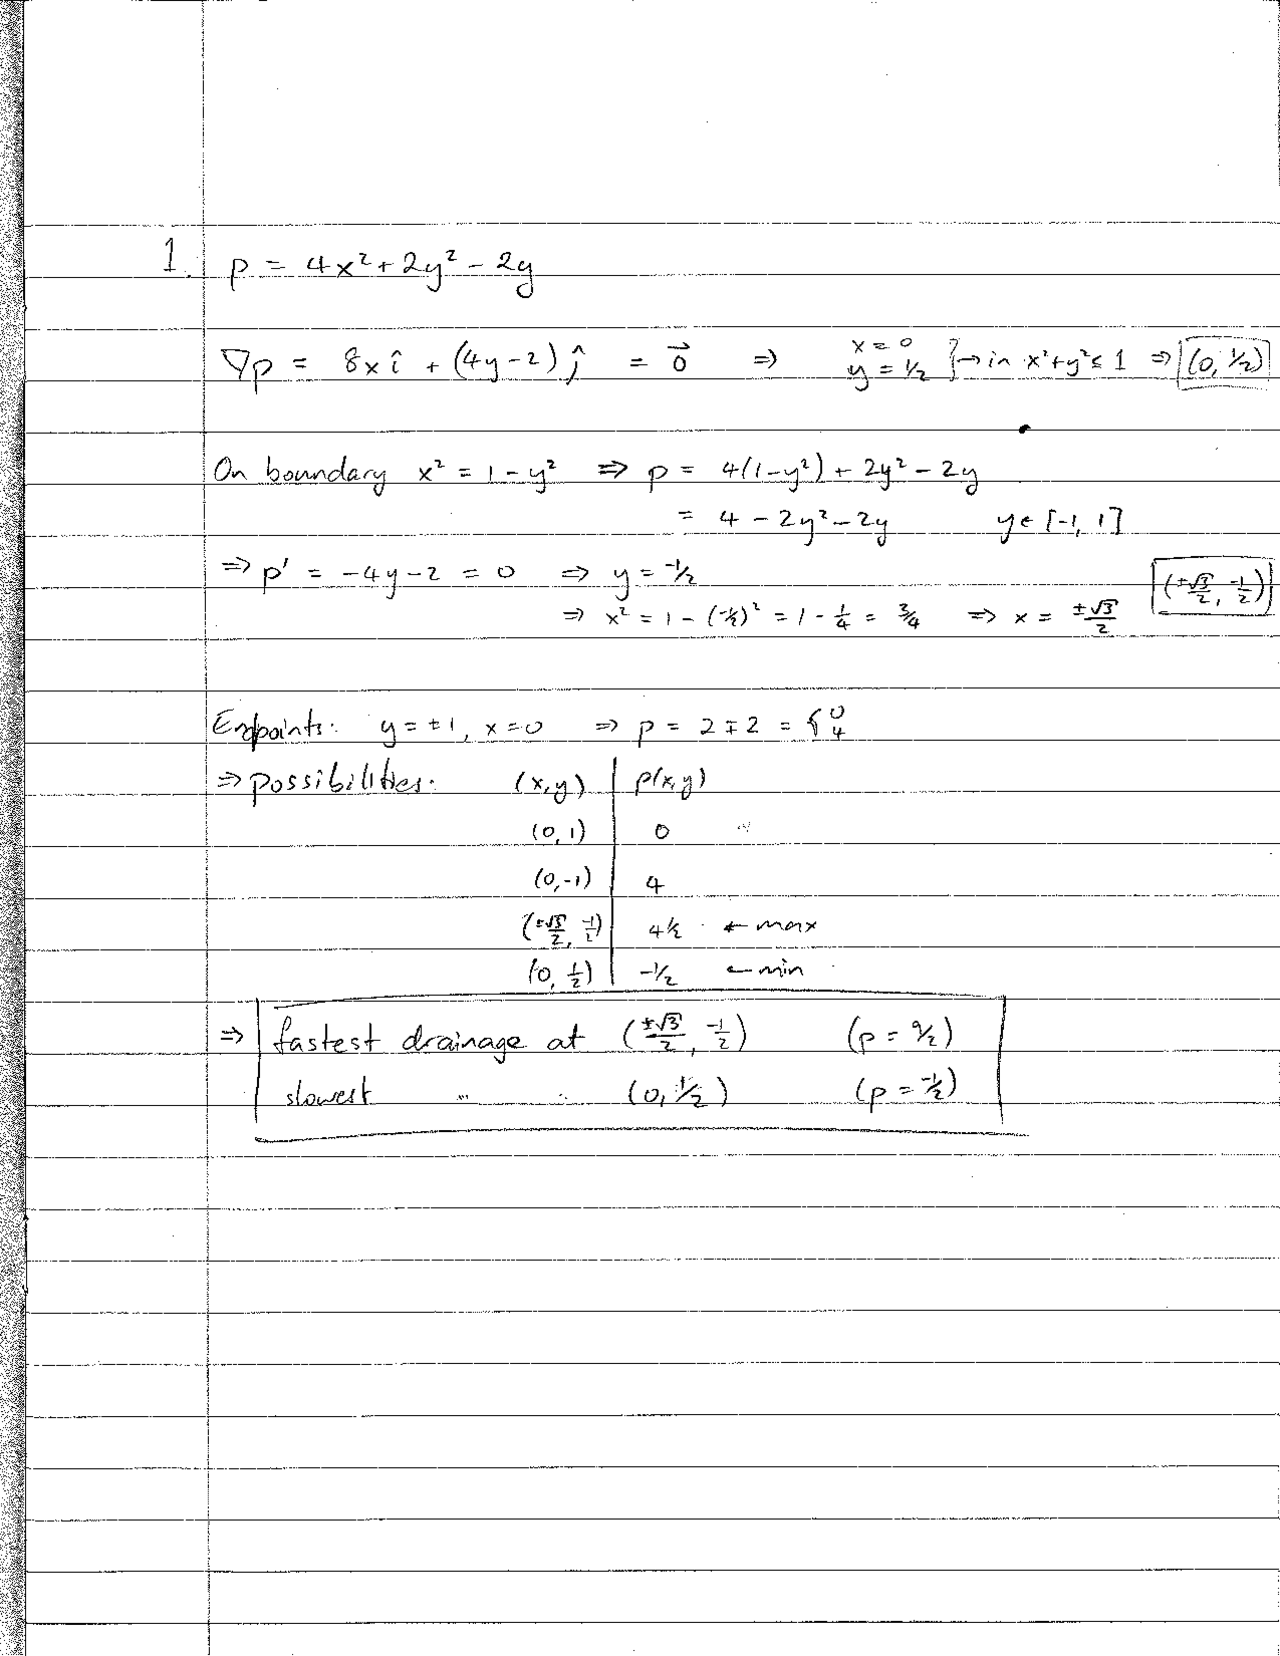 1. p = 4x² + 2y² - 2y
∇p = 8x î + (4y-2) ĵ = 0⃗ ⇒ x = 0 y = 1/2 } → in x²+y² ≤ 1 ⇒ (0, 1/2)
On boundary x² = 1-y² ⇒ p = 4(1-y²) + 2y² - 2y
= 4 - 2y² - 2y y ∈ [-1, 1]
⇒ p' = -4y-2 = 0 ⇒ y = -1/2
⇒ x² = 1 - (-1/2)² = 1 - 1/4 = 3/4 ⇒ x = ±√3/2 (±√3/2, -1/2)
Endpoints: y = ±1, x=0 ⇒ p = 2 ∓ 2 = { 0 4
⇒ possibilities: (x,y) | p(x,y)
(0, 1) | 0
(0,-1) | 4
(±√3/2, -1/2) | 4 1/2 ← max
(0, 1/2) | -1/2 ← min
⇒ fastest drainage at (±√3/2, -1/2) (p = 9/2)
slowest " " (0, 1/2) (p = -1/2)